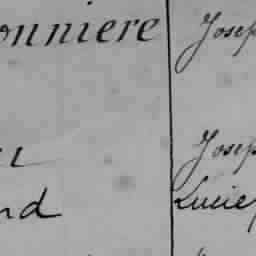 onniere Josep
Josep
nd Lucie